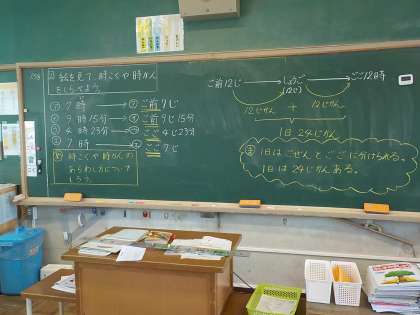 絵を見て、時こくや時かん
をしらべよう。
㋐ 7時 → ㋐ ご前7じ
㋑ 9時15分 → ㋑ ご前9じ15分
㋒ 4時23分 → ㋒ ごご4じ23分
㋓ 7時 → ㋓ ごご7じ
時こくや時かんの
あらわし方についてし
しろう。
ご前12じ → しょうご → ごご12時
(12じ)
12じかん + 12じかん
1日 24じかん
㋮ 1日はごぜんとごごに分けられる。
1日は24じかんある。